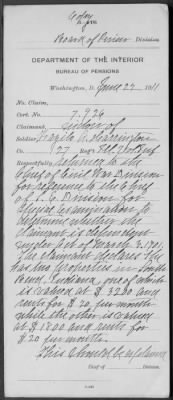 Copy
Board of Review Division
DEPARTMENT OF THE INTERIOR
BUREAU OF PENSIONS
Washington, D. June 27, 1911
No. Claim,
Cert. No. 7.926
Claimant, Widow of
Soldier,
Co. 127 Reg't
Respectfully returned to the
Chief of Civil War Division
for reference to the Chief
of S. E. Division for
Special Examination to
determine whether the
claimant is dependent
under Act of March 3, 1901.
The claimant declares she
has two properties in South
Bend, Indiana, one of which
is valued at $3200 and
rents for $20 per month
while the other is valued
at $1800 and rents for
$20 per month.
This should be explained
Chief of Division.